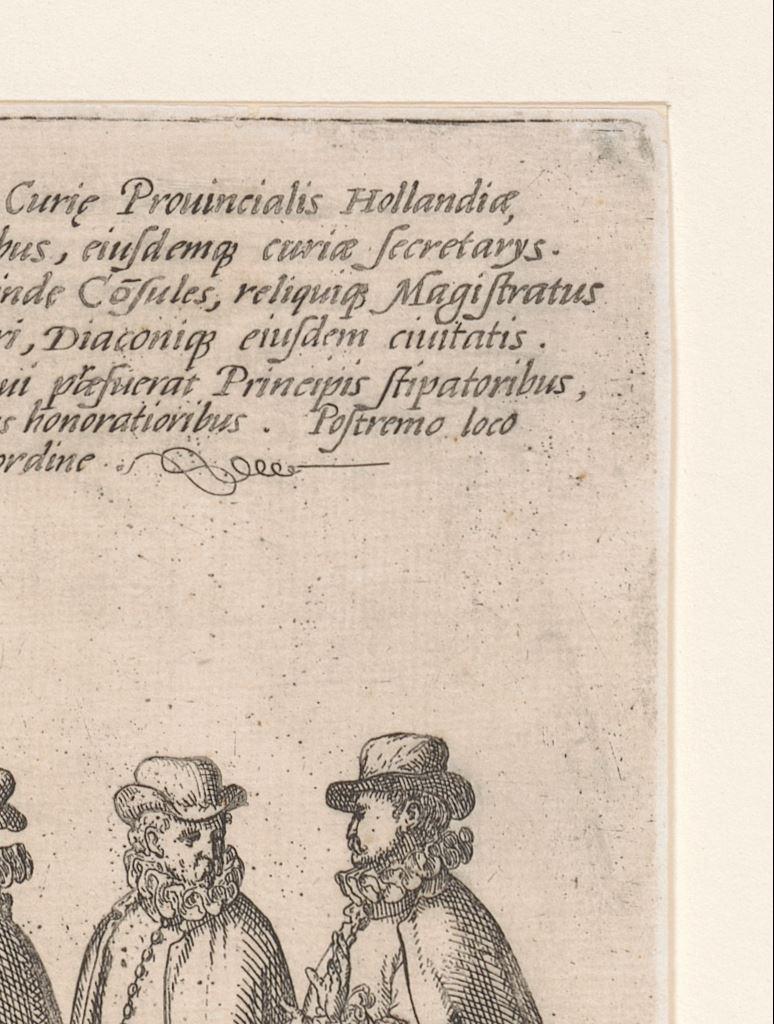 Curię Prouincialis Hollandiæ,
bus, eiusdemqꝫ curiæ secretarys.
inde Cōsules, reliquiqꝫ Magistratus
ri, Diaconiqꝫ eiusdem ciuitatis.
ui præfuerat Principis stipatoribus,
s honoratioribus. Postremo loco
ordine